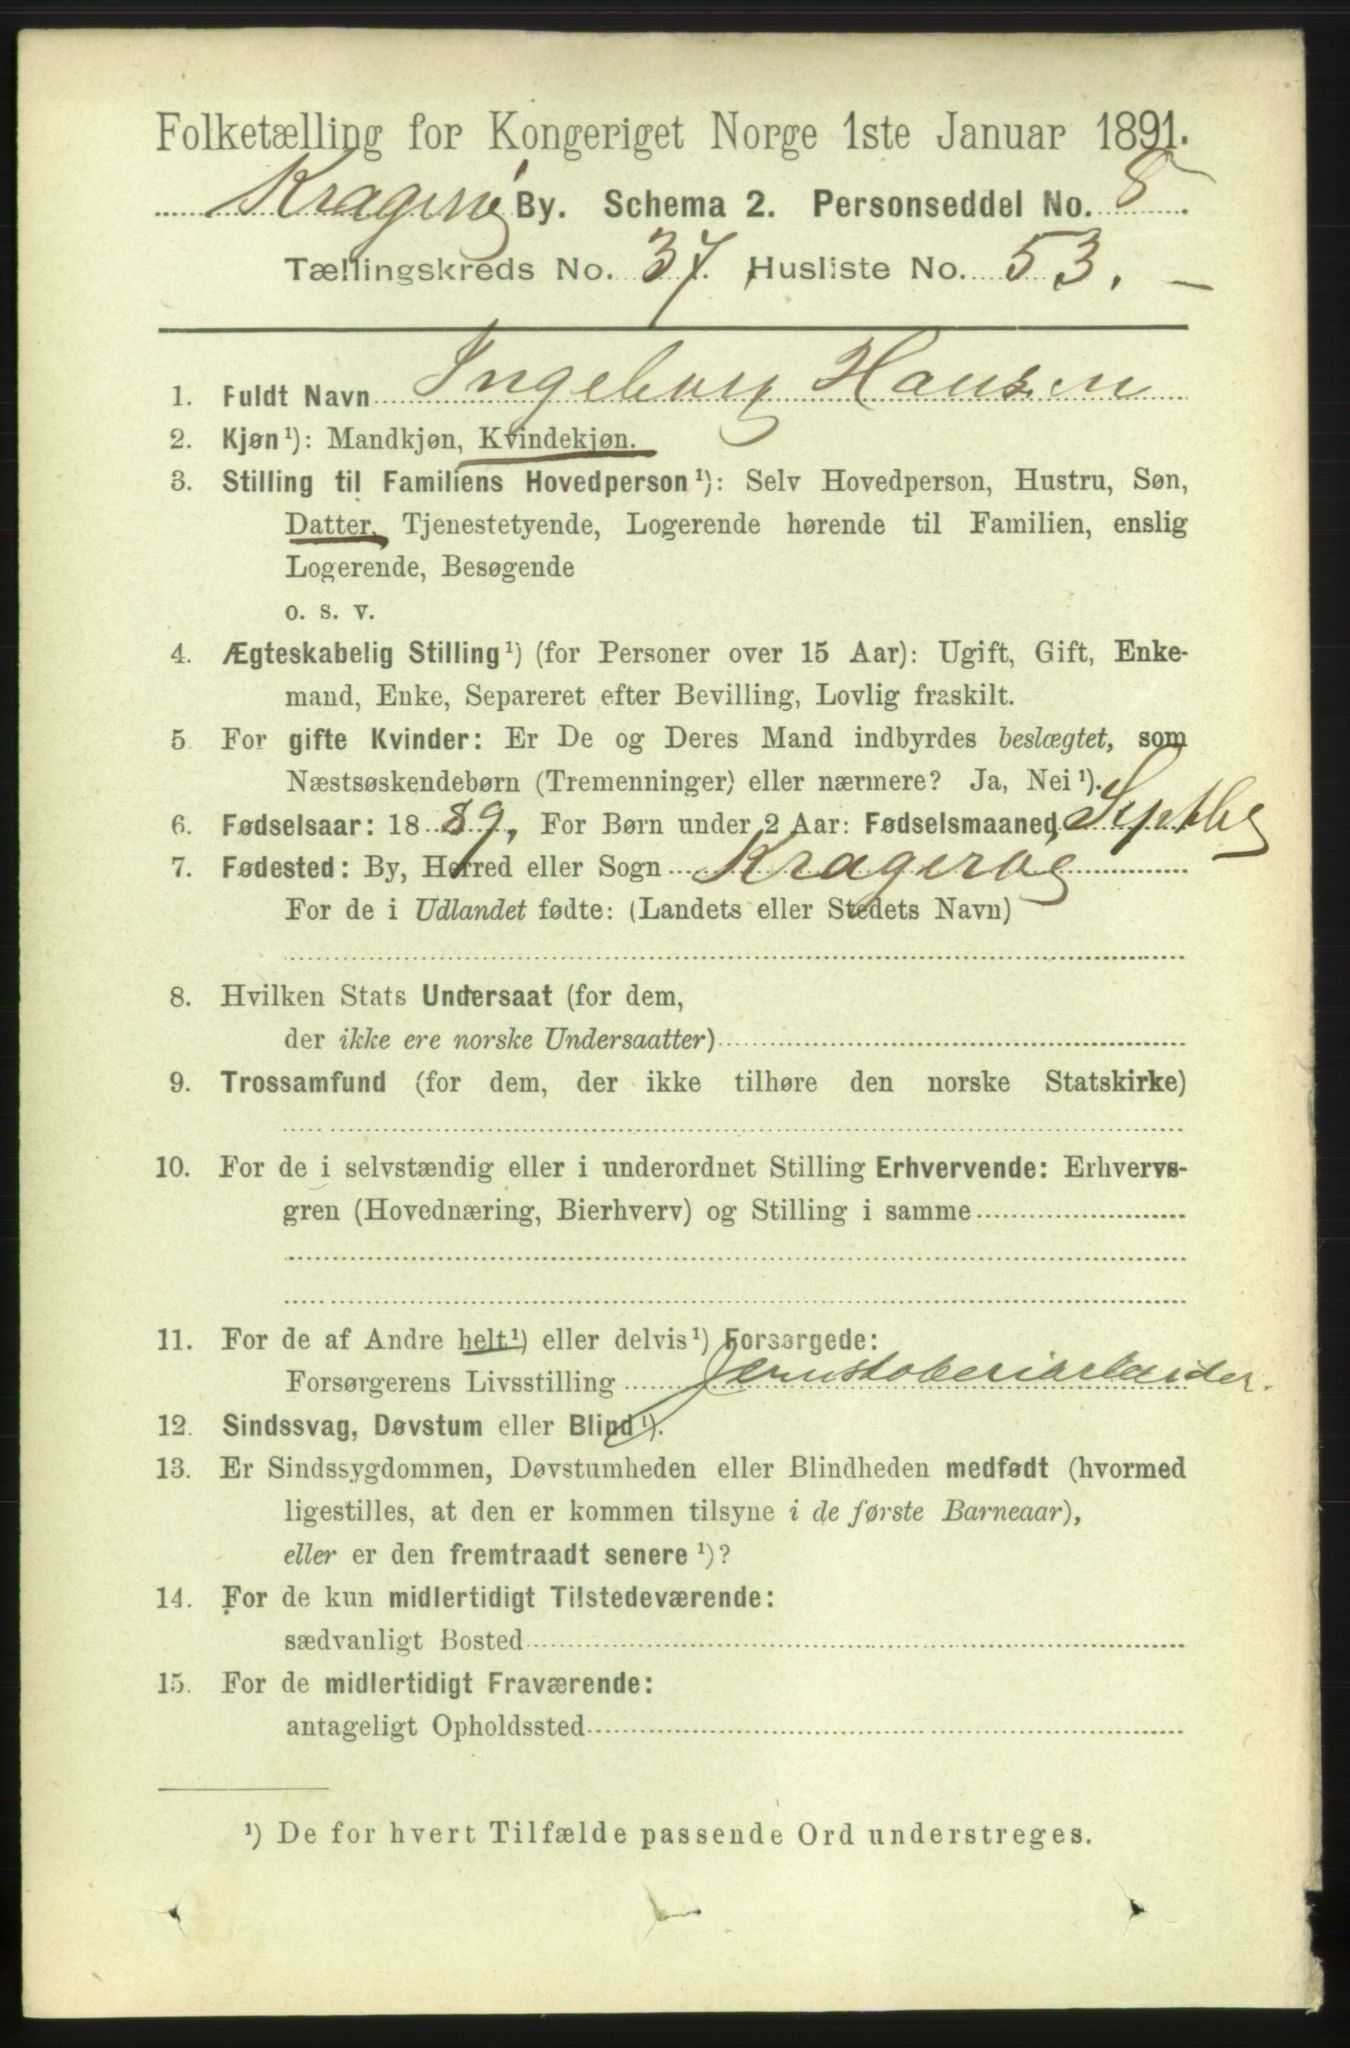 Folketælling for Kongeriget Norge 1ste Januar 1891.
Kragerø By. Schema 2. Personseddel No. 8
Tællingskreds No. 37. Husliste No. 53. —
1. Fuldt Navn Ingeborg Hansen
2. Kjøn¹): Mandkjøn, Kvindekjøn.
3. Stilling til Familiens Hovedperson¹): Selv Hovedperson, Hustru, Søn,
Datter, Tjenestetyende, Logerende hørende til Familien, enslig
Logerende, Besøgende
o. s. v.
4. Ægteskabelig Stilling¹) (for Personer over 15 Aar): Ugift, Gift, Enke-
mand, Enke, Separeret efter Bevilling, Lovlig fraskilt.
5 For gifte Kvinder: Er De og Deres Mand indbyrdes beslægtet, som
Næstsøskendebørn (Tremenninger) eller nærmere? Ja, Nei¹).
6. Fødselsaar: 1889. For Børn under 2 Aar: Fødselsmaaned Septbg
7. Fødested: By, Herred eller Sogn Kragerø
For de i Udlandet fødte: (Landets eller Stedets Navn)
8. Hvilken Stats Undersaat (for dem,
der ikke ere norske Undersaatter)
9. Trossamfund (for dem, der ikke tilhøre den norske Statskirke)
10. For de i selvstændig eller i underordnet Stilling Erhvervende: Erhvervs-
gren (Hovednæring, Bierhverv) og Stilling i samme
11. For de af Andre helt¹) eller delvis¹) Forsørgede:
Forsørgerens Livsstilling Jernstøberiarbeider.
12. Sindssvag, Døvstum eller Blind¹).
13. Er Sindssygdommen, Døvstumheden eller Blindheden medfødt (hvormed
ligestilles, at den er kommen tilsyne i de første Barneaar),
eller er den fremtraadt senere¹)?
14. For de kun midlertidigt Tilstedeværende:
sædvanligt Bosted
15. For de midlertidigt Fraværende:
antageligt Opholdssted
¹) De for hvert Tilfælde passende Ord understreges.